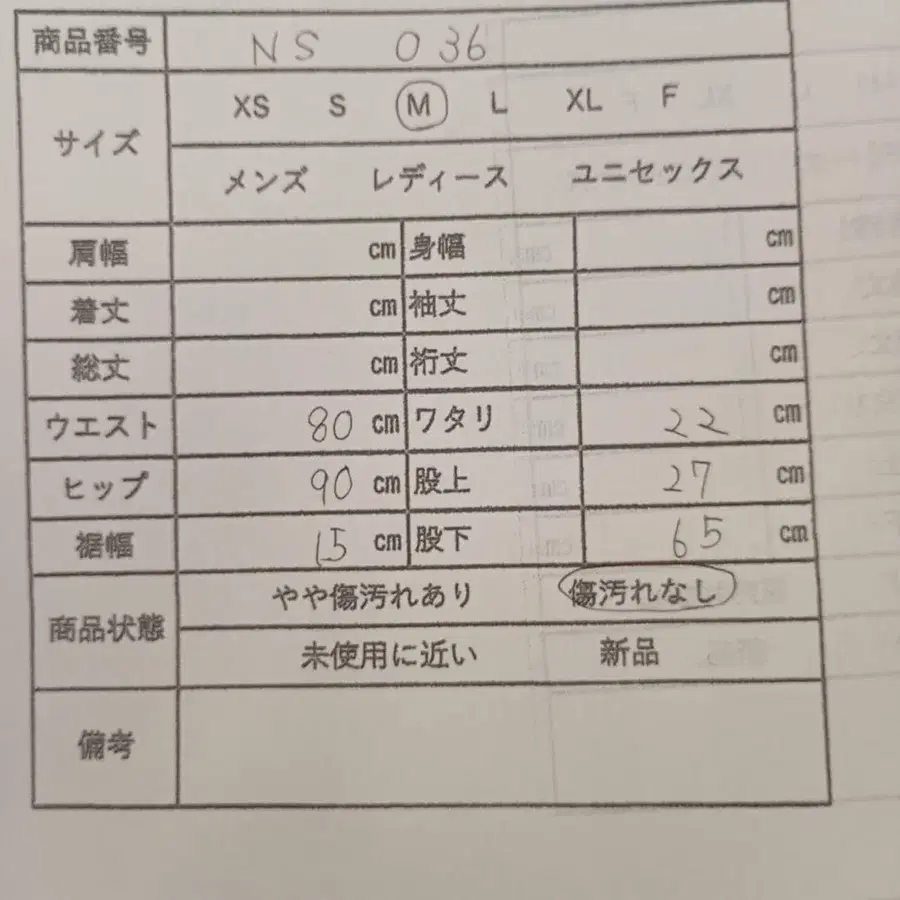 商品番号 NS 036
サイズ XS S M L XL F
メンズ レディース ユニセックス
肩幅 cm 身幅 cm
着丈 cm 袖丈 cm
総丈 cm 裄丈 cm
ウエスト 80 cm ワタリ 22 cm
ヒップ 90 cm 股上 27 cm
裾幅 15 cm 股下 65 cm
商品状態 やや傷汚れあり 傷汚れなし
未使用に近い 新品
備考